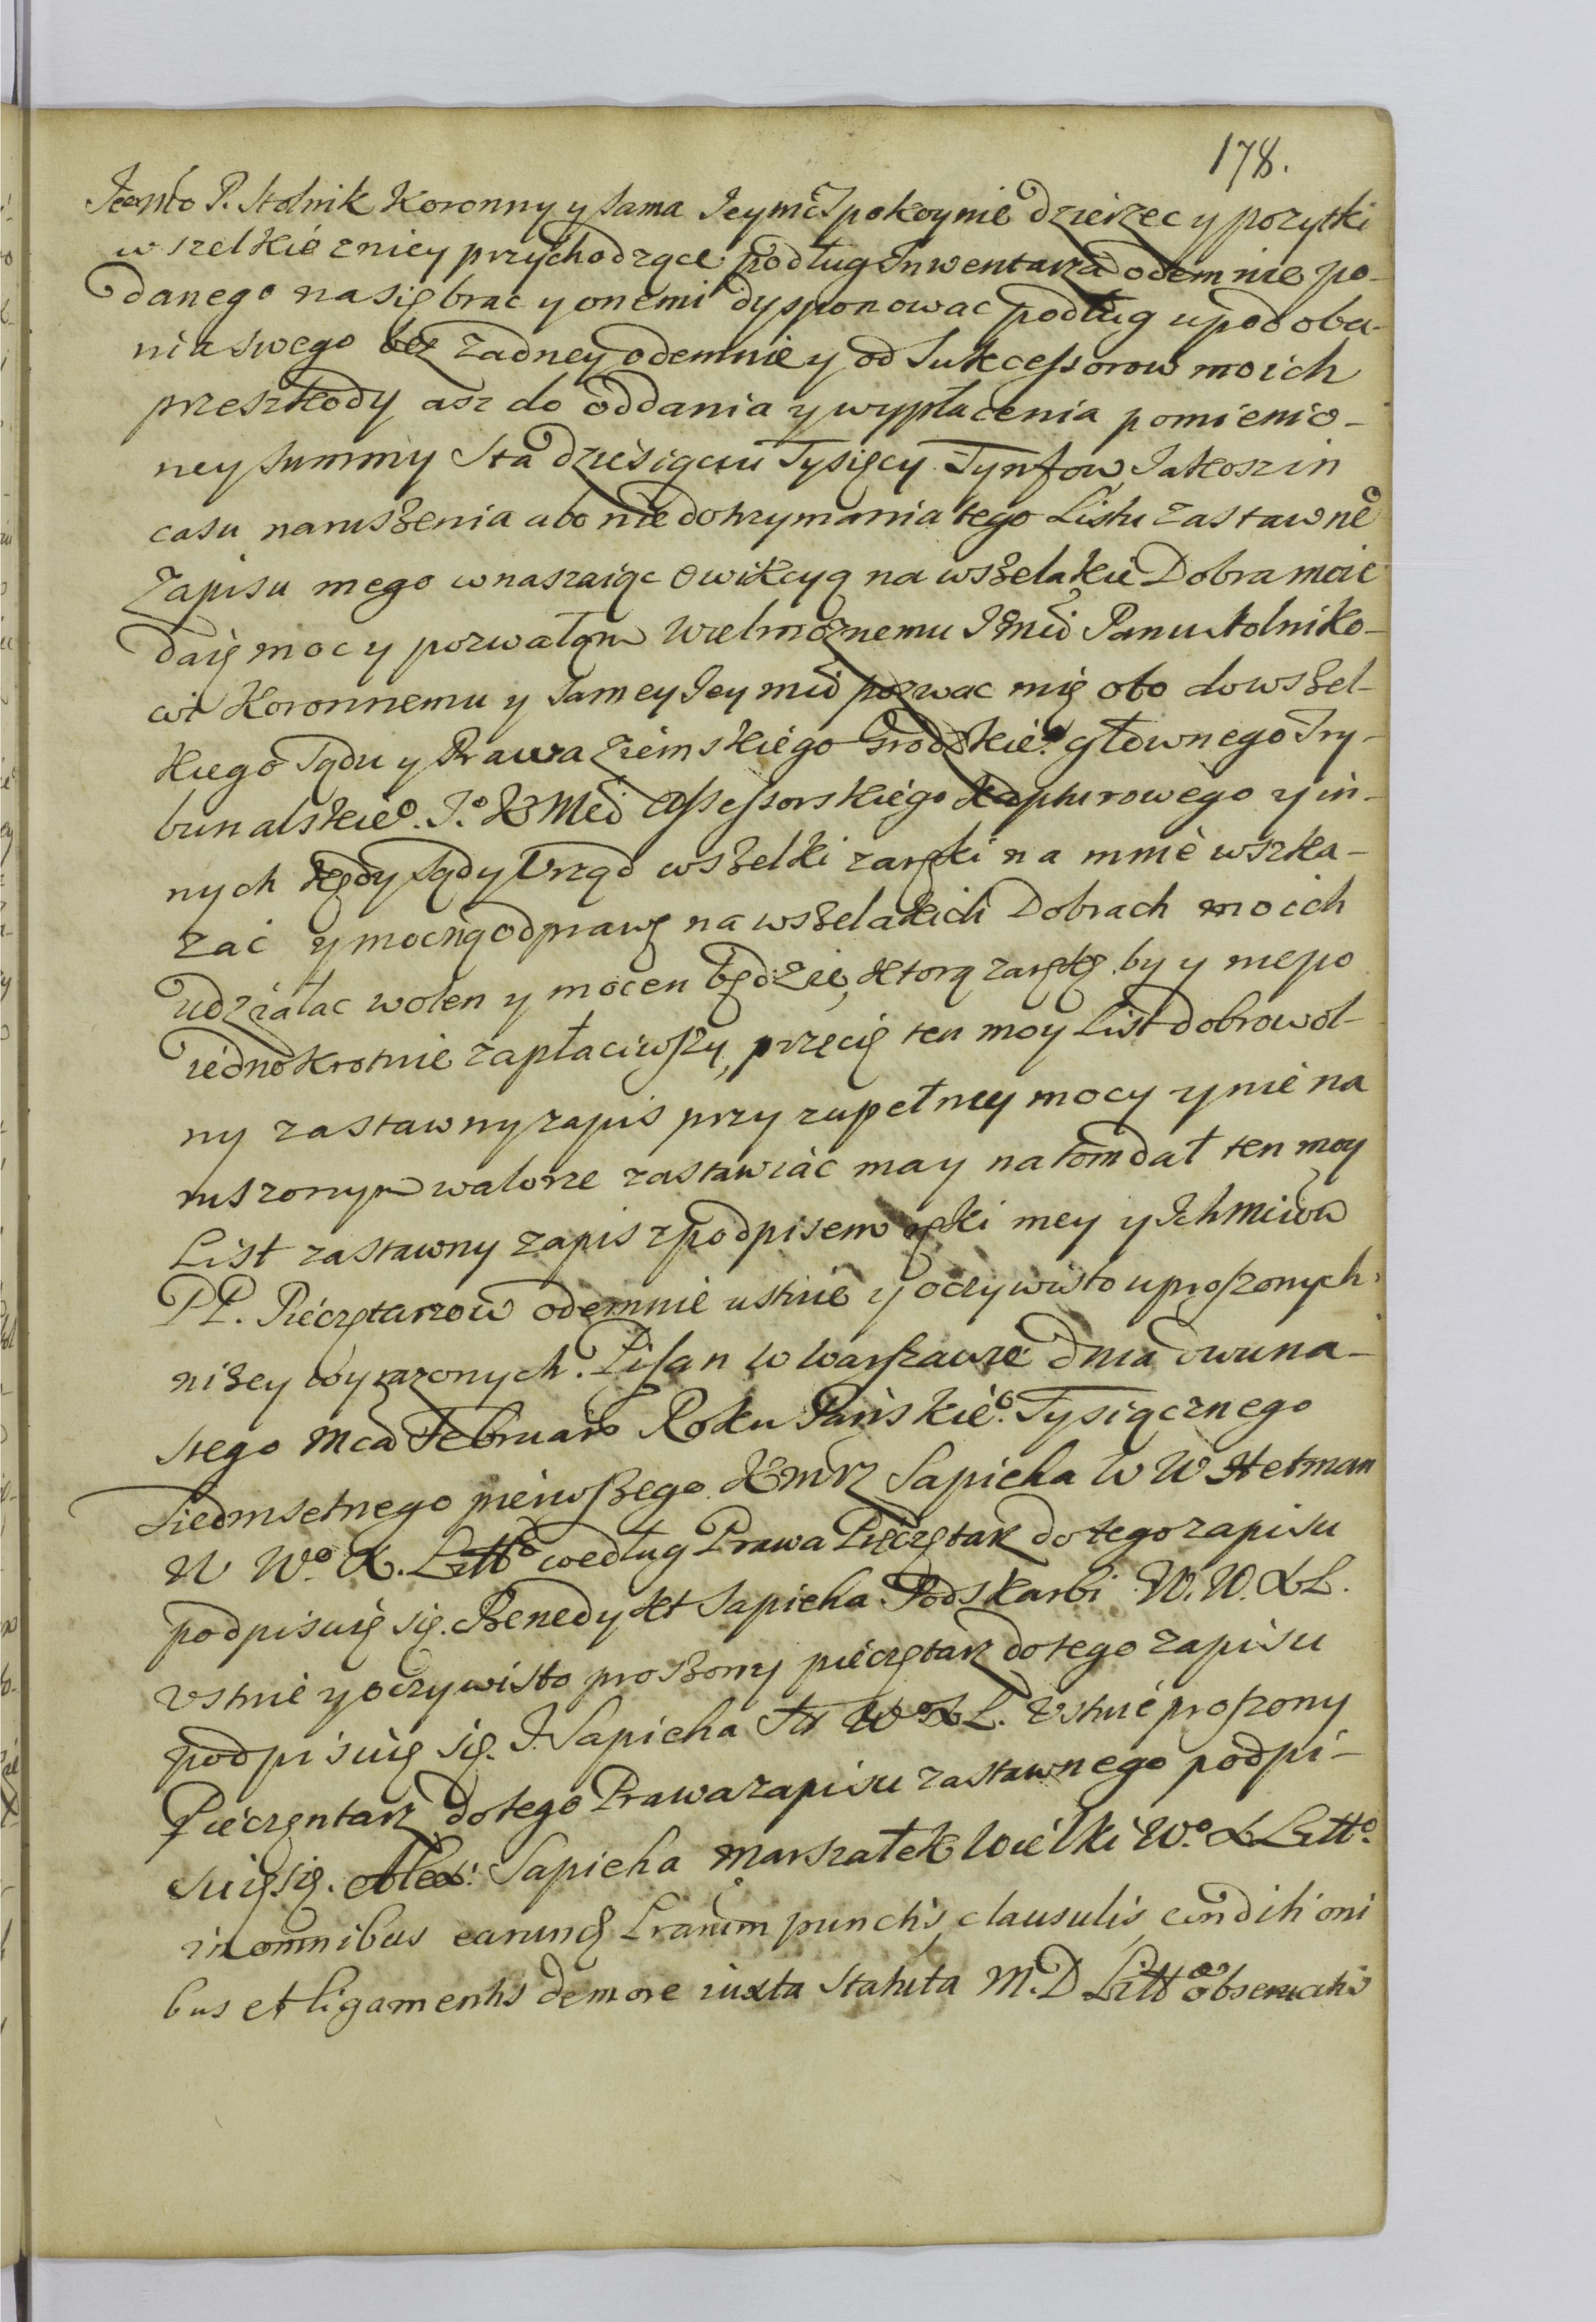 178.
Jeemło P. Stolnik Koronny y Sama Jeymć spokoynie dzierzec y pozytki
wszelkie zniey przychodzące podług Inwentarza odemnie po-
danego nasię brac y onemi dysponowac podług upodoba-
nia swego bez zadney odemnie y od Sukcessorow moich
przeszkody asz do oddania y wypłacenia pomienio-
ney summy Sta dziesiąciu Tysięcy Tynfow Jakosz in
casu naruszenia abo nie dotrzymania tego Listu zastawne
Zapisu mego wnaszaiąc Ewikcyą na wszelakie Dobra moie
daię moc y pozwalam Wielmoznemu Jmći Panu Stolniko-
wi Koronnemu y Samey Jey mći pozwac mię oto dowszel-
kiego Sądu y Prawa Ziemskiego Grodzkiego głownego Try-
bunalskieo. Jo K Mći Assessorskiego Kapturowego y in-
nych kędy sądy Vrząd wszelki zaręki na mnie wska-
zać y mocną odprawę na wszelakich Dobrach moich
udziałac wolen y mocen będzie, ktorą zarękę by y niepo
iednokrotnie zapłaciwszy, przecię ten moy List dobrowol-
ny zastawny zapis przy zupełney mocy y nie na
ruszonym walorze zastawiac ma y natom dał ten moy
List zastawny zapis z podpisem ręki mey y Ichmciow
PP. Pieczętarzow odemnie ustnie y oczywisto uproszonych
niżey wyrazonych. Pisan w Warszawie dnia dwuna-
stego mca Februarii Roku Pańskieo. Tysiącznego
Siedmsetnego pierwszego. Kmrz Sapieha W W Hetman
W Wo X. Litto według Prawa Pieczętarz do tego zapisu
podpisuię się. Benedykt Sapieha Podskarbi W. W. X L.
Vstnie y oczywisto proszony pieczętarz do tego zapisu
podpisuię się. J. Sapieha Wo X L. Vstnie proszony
Pieczentarz do tego Prawa zapisu zastawnego podpi-
suię się. Alex: Sapieha Marszałek Wielki Wo. X Litto.
in omnibus earund Lrarum punctis, clausulis, conditioni
bus et ligamentis de more iuxta Statuta M. D Litt observatis